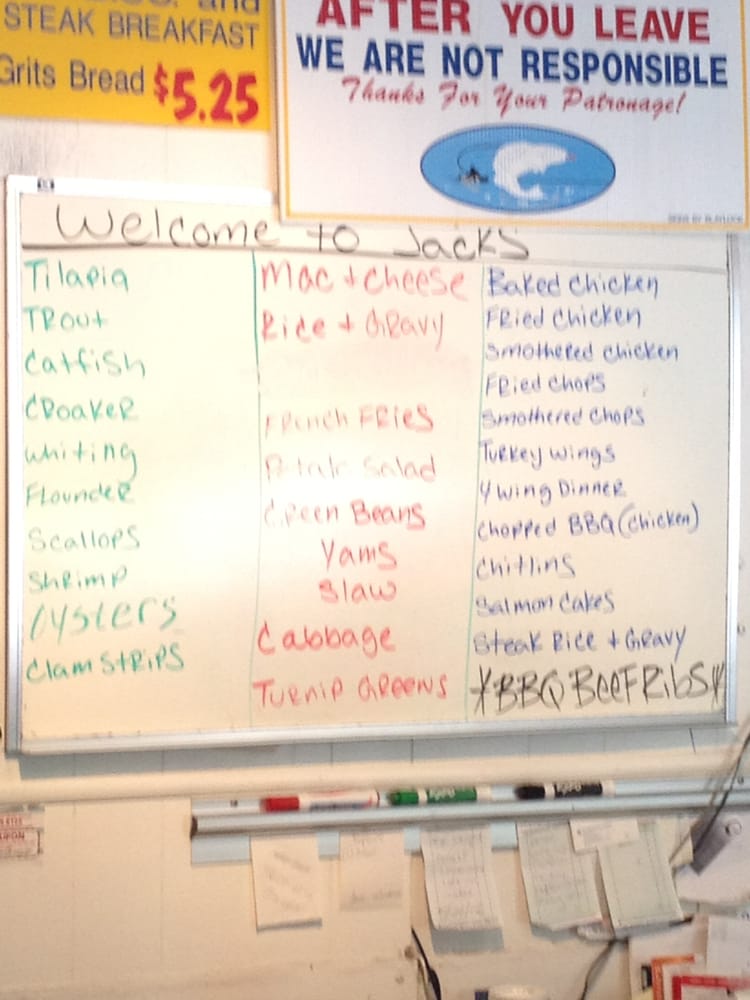 and
STEAK BREAKFAST
Grits Bread $5.25
AFTER YOU LEAVE
WE ARE NOT RESPONSIBLE
Thanks For Your Patronage!
Welcome to Jacks
Tilapia
TROUT
Catfish
CROAKER
Whiting
FLOUNDER
Scallops
SHRIMP
Oysters
Clam STRIPS
Mac + Cheese
Rice + GRAVY
FRENCH FRIES
Potato Salad
Green Beans
Yams
Slaw
Cabbage
TURNIP GREENS
BAKED Chicken
FRied Chicken
Smothered Chicken
FRied Chops
Smothered Chops
Turkey Wings
4 Wing Dinner
Chopped BBQ (Chicken)
Chitlins
Salmon Cakes
Steak Rice + Gravy
*BBQ Beef Ribs*